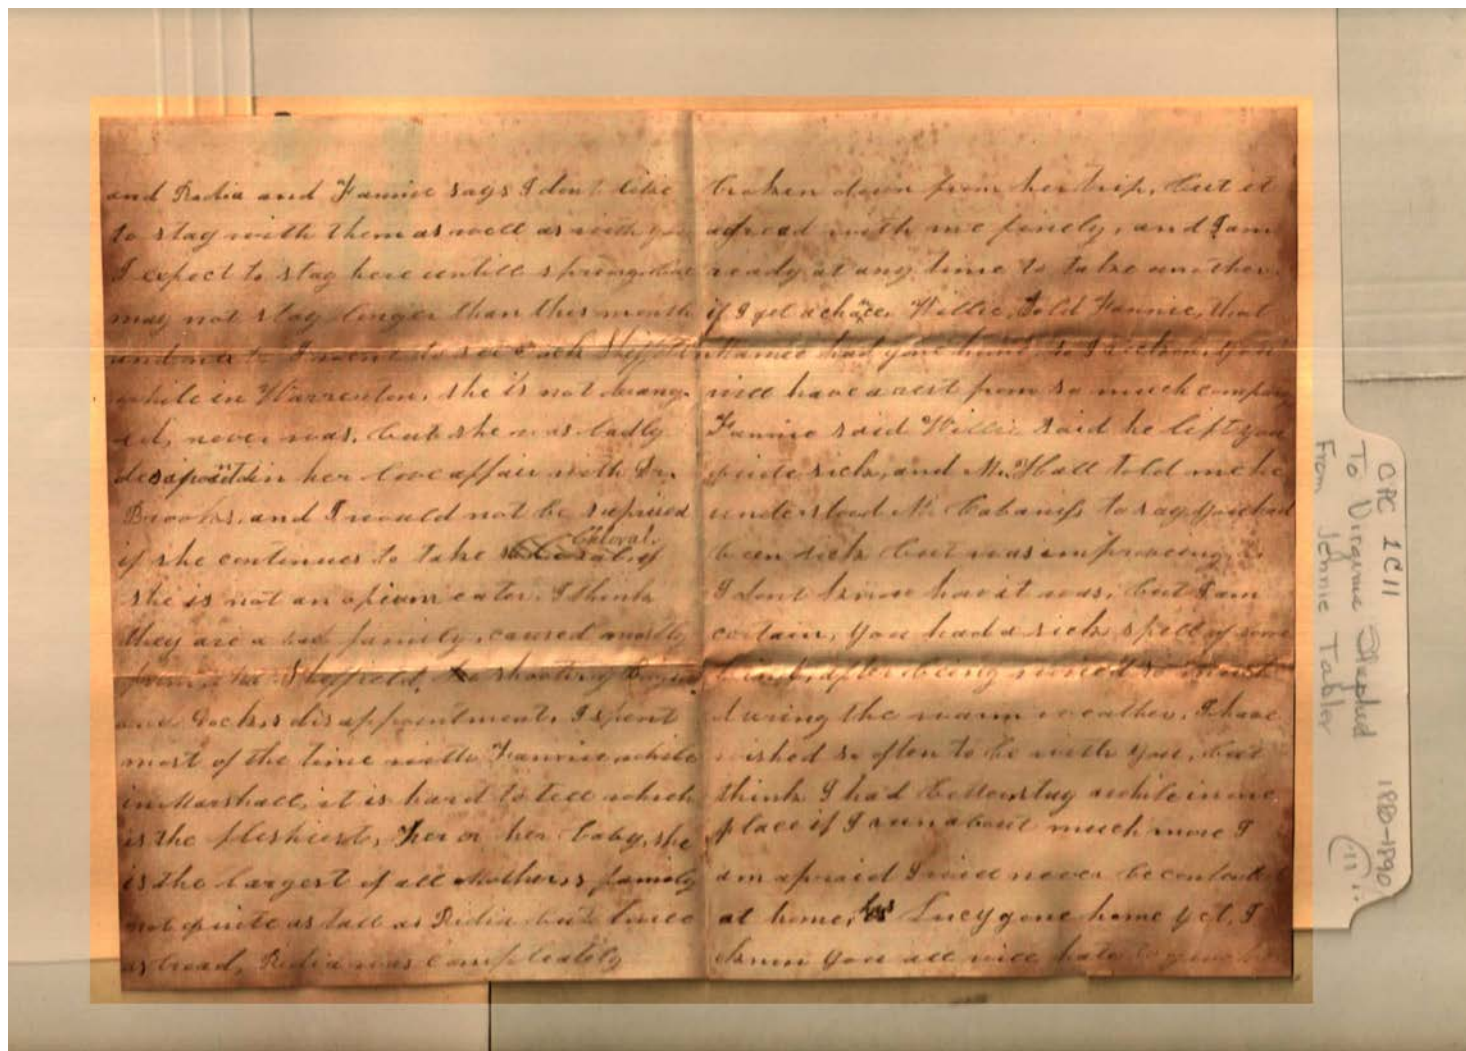 and Ridia and Fannie says I dont like
to stay with them as well as with you
I expect to stay here untill spring, but
may not stay longer than this month
I went to see
while in Warrenton, she is not
ed, never was, but she was badly
in her love affair with Dr.
Brooks, and I would not be suprised
if she continues to take Chloral. if
she is not an opium eater. I think
they are a family, caused mostly
from Sheffield, shooting
and Jocks, disappointment. I spent
most of the time with Fannie while
in Marshall, it is hard to tell which
is the fleshiest, her or her baby, she
is the largest of all Mother,s family
not quite as tall as Ridia but twice
as broad, Ridia was completely
broken down from her trip, but it
agreed with me finely, and I am
ready at any time to take another.
if I get a chace. Willie, told Fannie, that
had gone home so I reckon you
will have a rest from so much company
Fannie said Willie said he left you
quite sick, and Mr. Hall told me he
understood Mr. Cabaniss to say you had
been sick but was improving.
I dont know how it was, but I am
certain, you had a sick spell of some
kind, after being so much
during the warm weather. I have
wished so often to be with you, but
think I had better stay awhile in one
place if I run about much more I
am afraid I will never be contented
at home, has Lucy gone home yet, I
know you all will hate to
CPC 1C11
To Virginia Shepherd 1880-1890
From Jennie Tabler
(11)